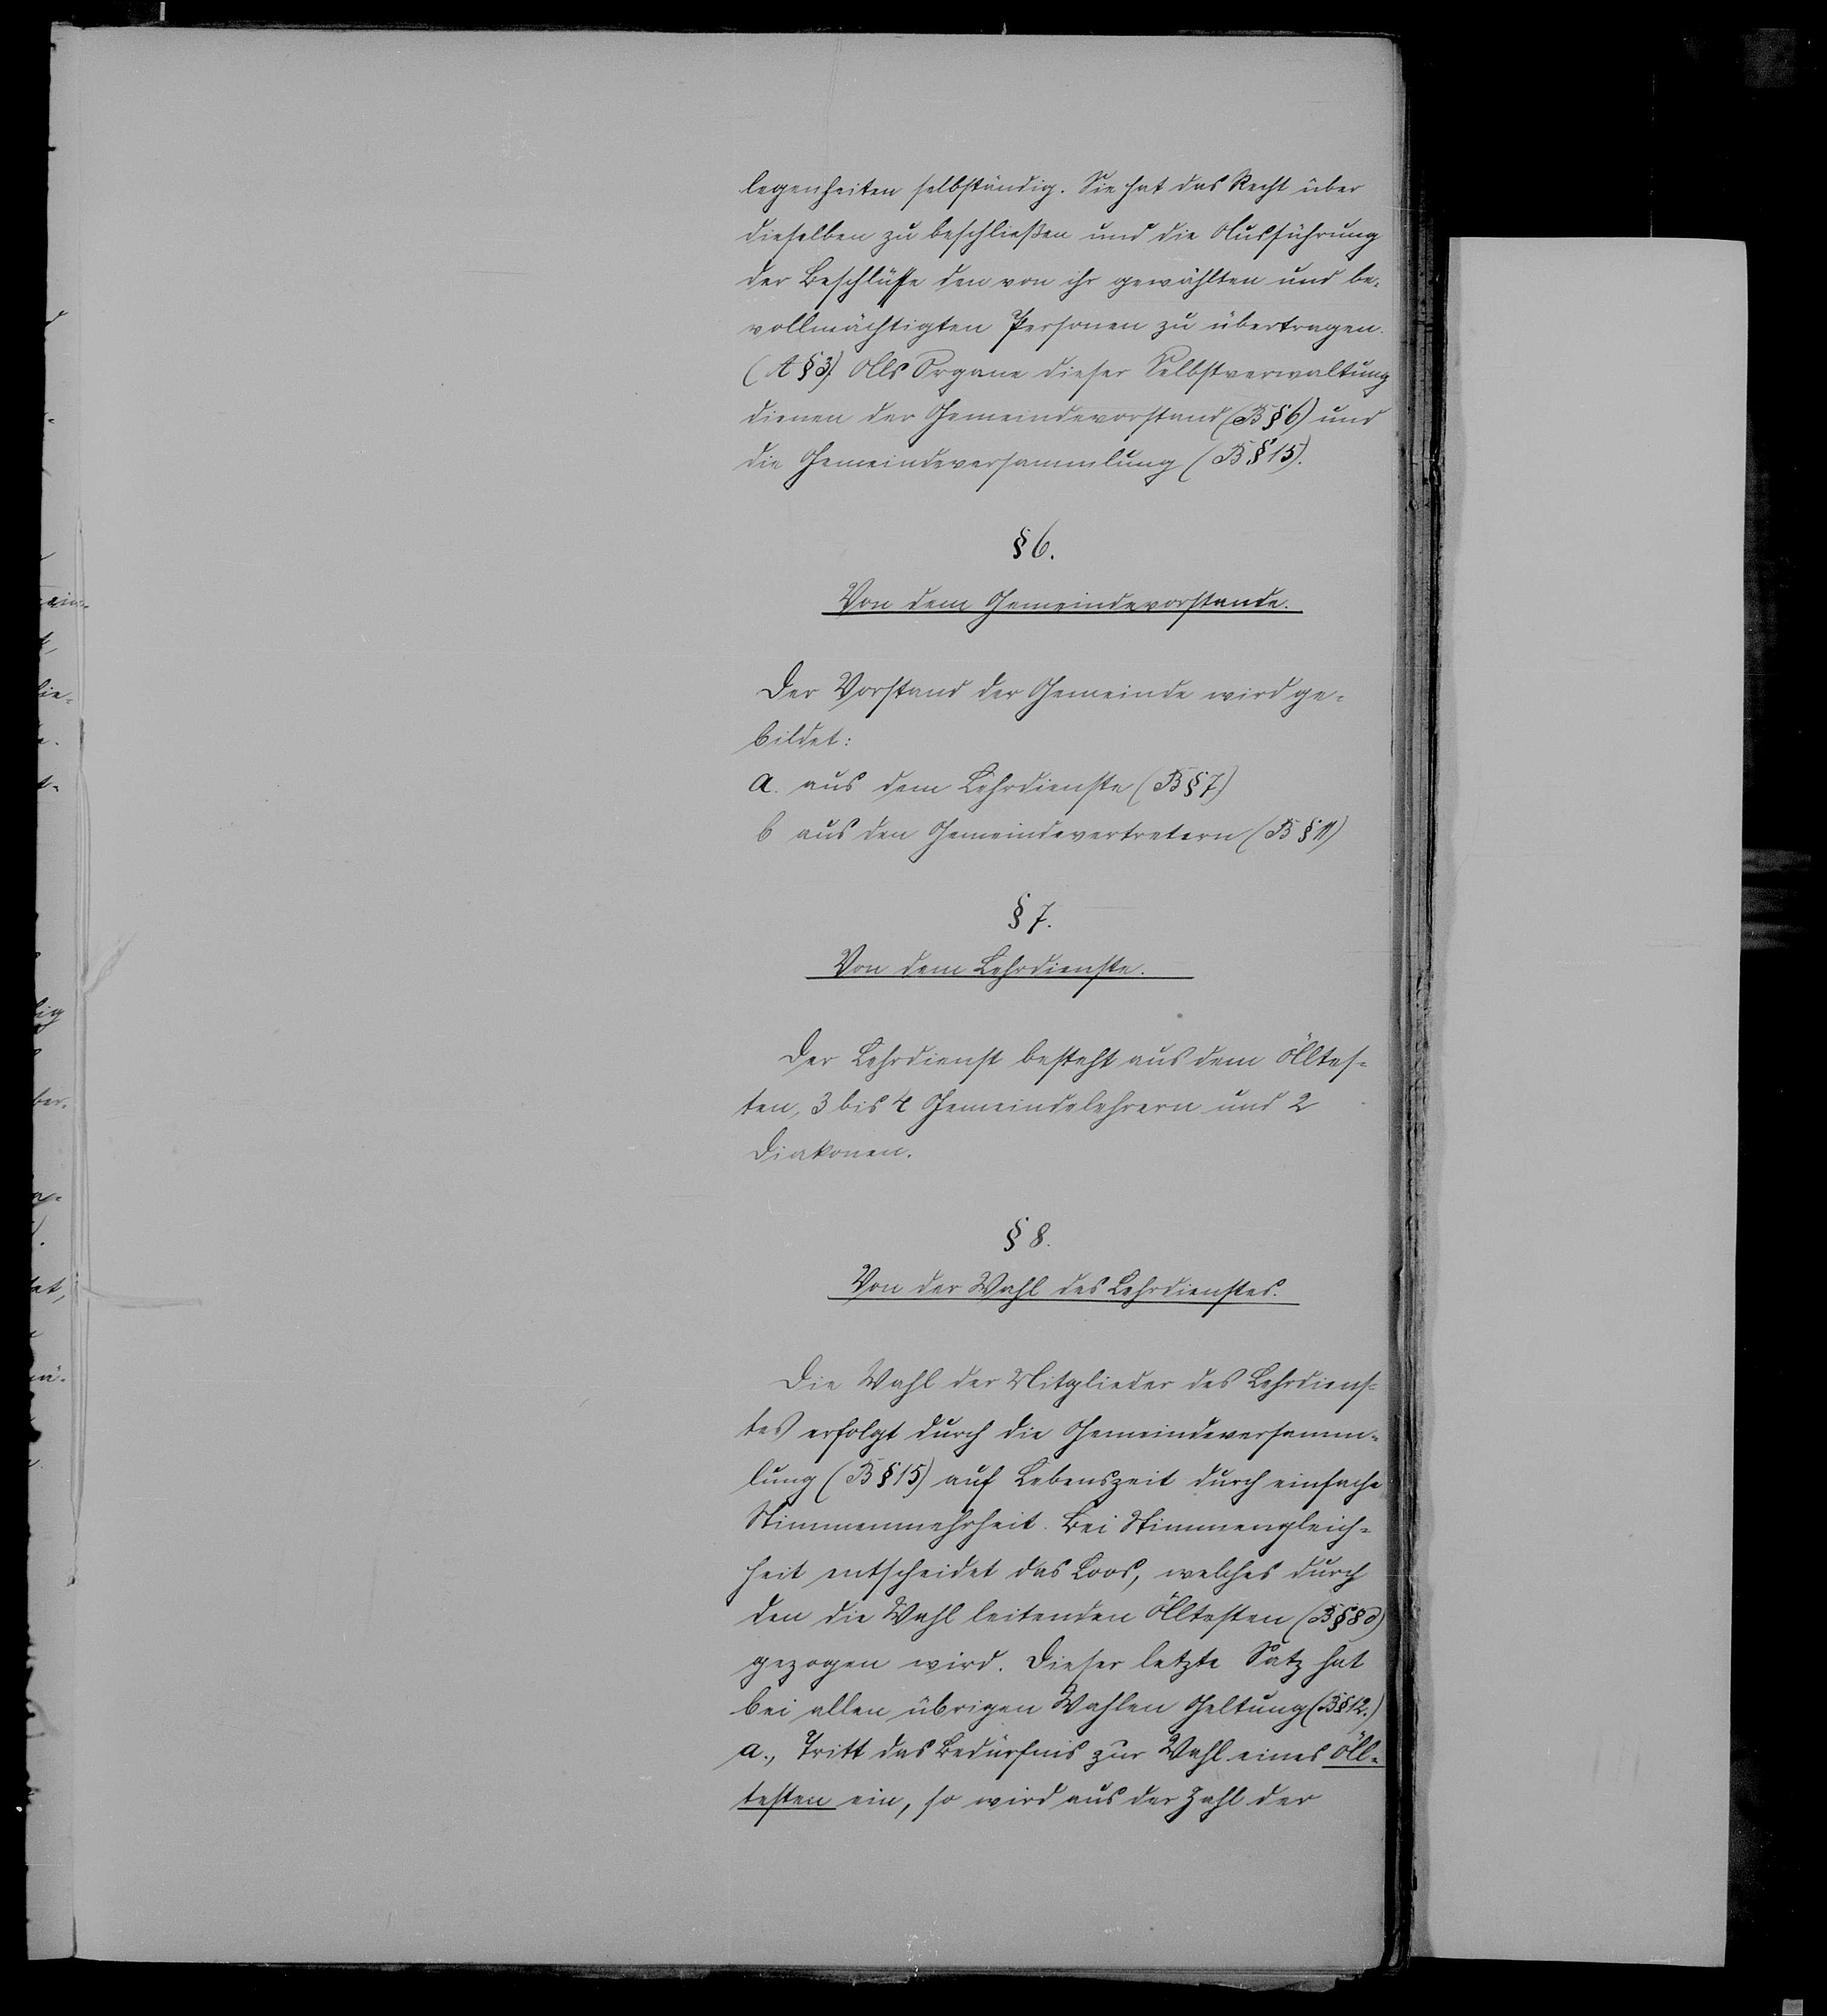 legenheiten selbständig. Sie hat das Recht über
dieselben zu beschließen und die Ausführung
der Beschlüsse den von ihr gewählten und be-
vollmächtigten Personen zu übertragen.
(A § 3) Als Organe dieser Selbstverwaltung
dienen der Gemeindevorstand (B § 6) und
die Gemeindeversammlung (B § 15).
§ 6.
Von dem Gemeindevorstande.
Der Vorstand der Gemeinde wird ge-
bildet:
a. aus dem Lehrdienste (B § 7)
b aus den Gemeindevertretern (B § 11)
§ 7.
Von dem Lehrdienste.
Der Lehrdienst besteht aus dem Ältes-
ten, 3 bis 4 Gemeindelehrern und 2
Diakonen.
§ 8.
Von der Wahl des Lehrdienstes.
Die Wahl der Mitglieder des Lehrdiens-
tes erfolgt durch die Gemeindeversamm-
lung (B § 15) auf Lebenszeit durch einfache
Stimmenmehrheit. Bei Stimmengleich-
heit entscheidet das Loos, welches durch
den die Wahl leitenden Ältesten (B § 8 d)
gezogen wird. Dieser letzte Satz hat
bei allen übrigen Wahlen Geltung (B § 12.)
a., Tritt das Bedürfnis zur Wahl eines Äl-
testen ein, so wird aus der Zahl der